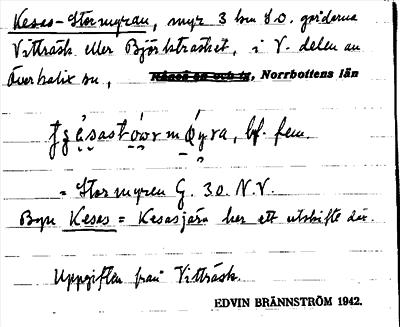 Kesas-Stormyran, myr 3 km SO. gårdarna
Vitträsk eller Björkträsket, i V. delen av
Överkalix sn, Råneå sn och tg, Norrbottens län
bf. fem.
= Stormyren G. 30. N.V.
Byn Kesas = Kesasjärv har ett utskifte där.
Uppgiften från Vitträsk.
EDVIN BRÄNNSTRÖM 1942.